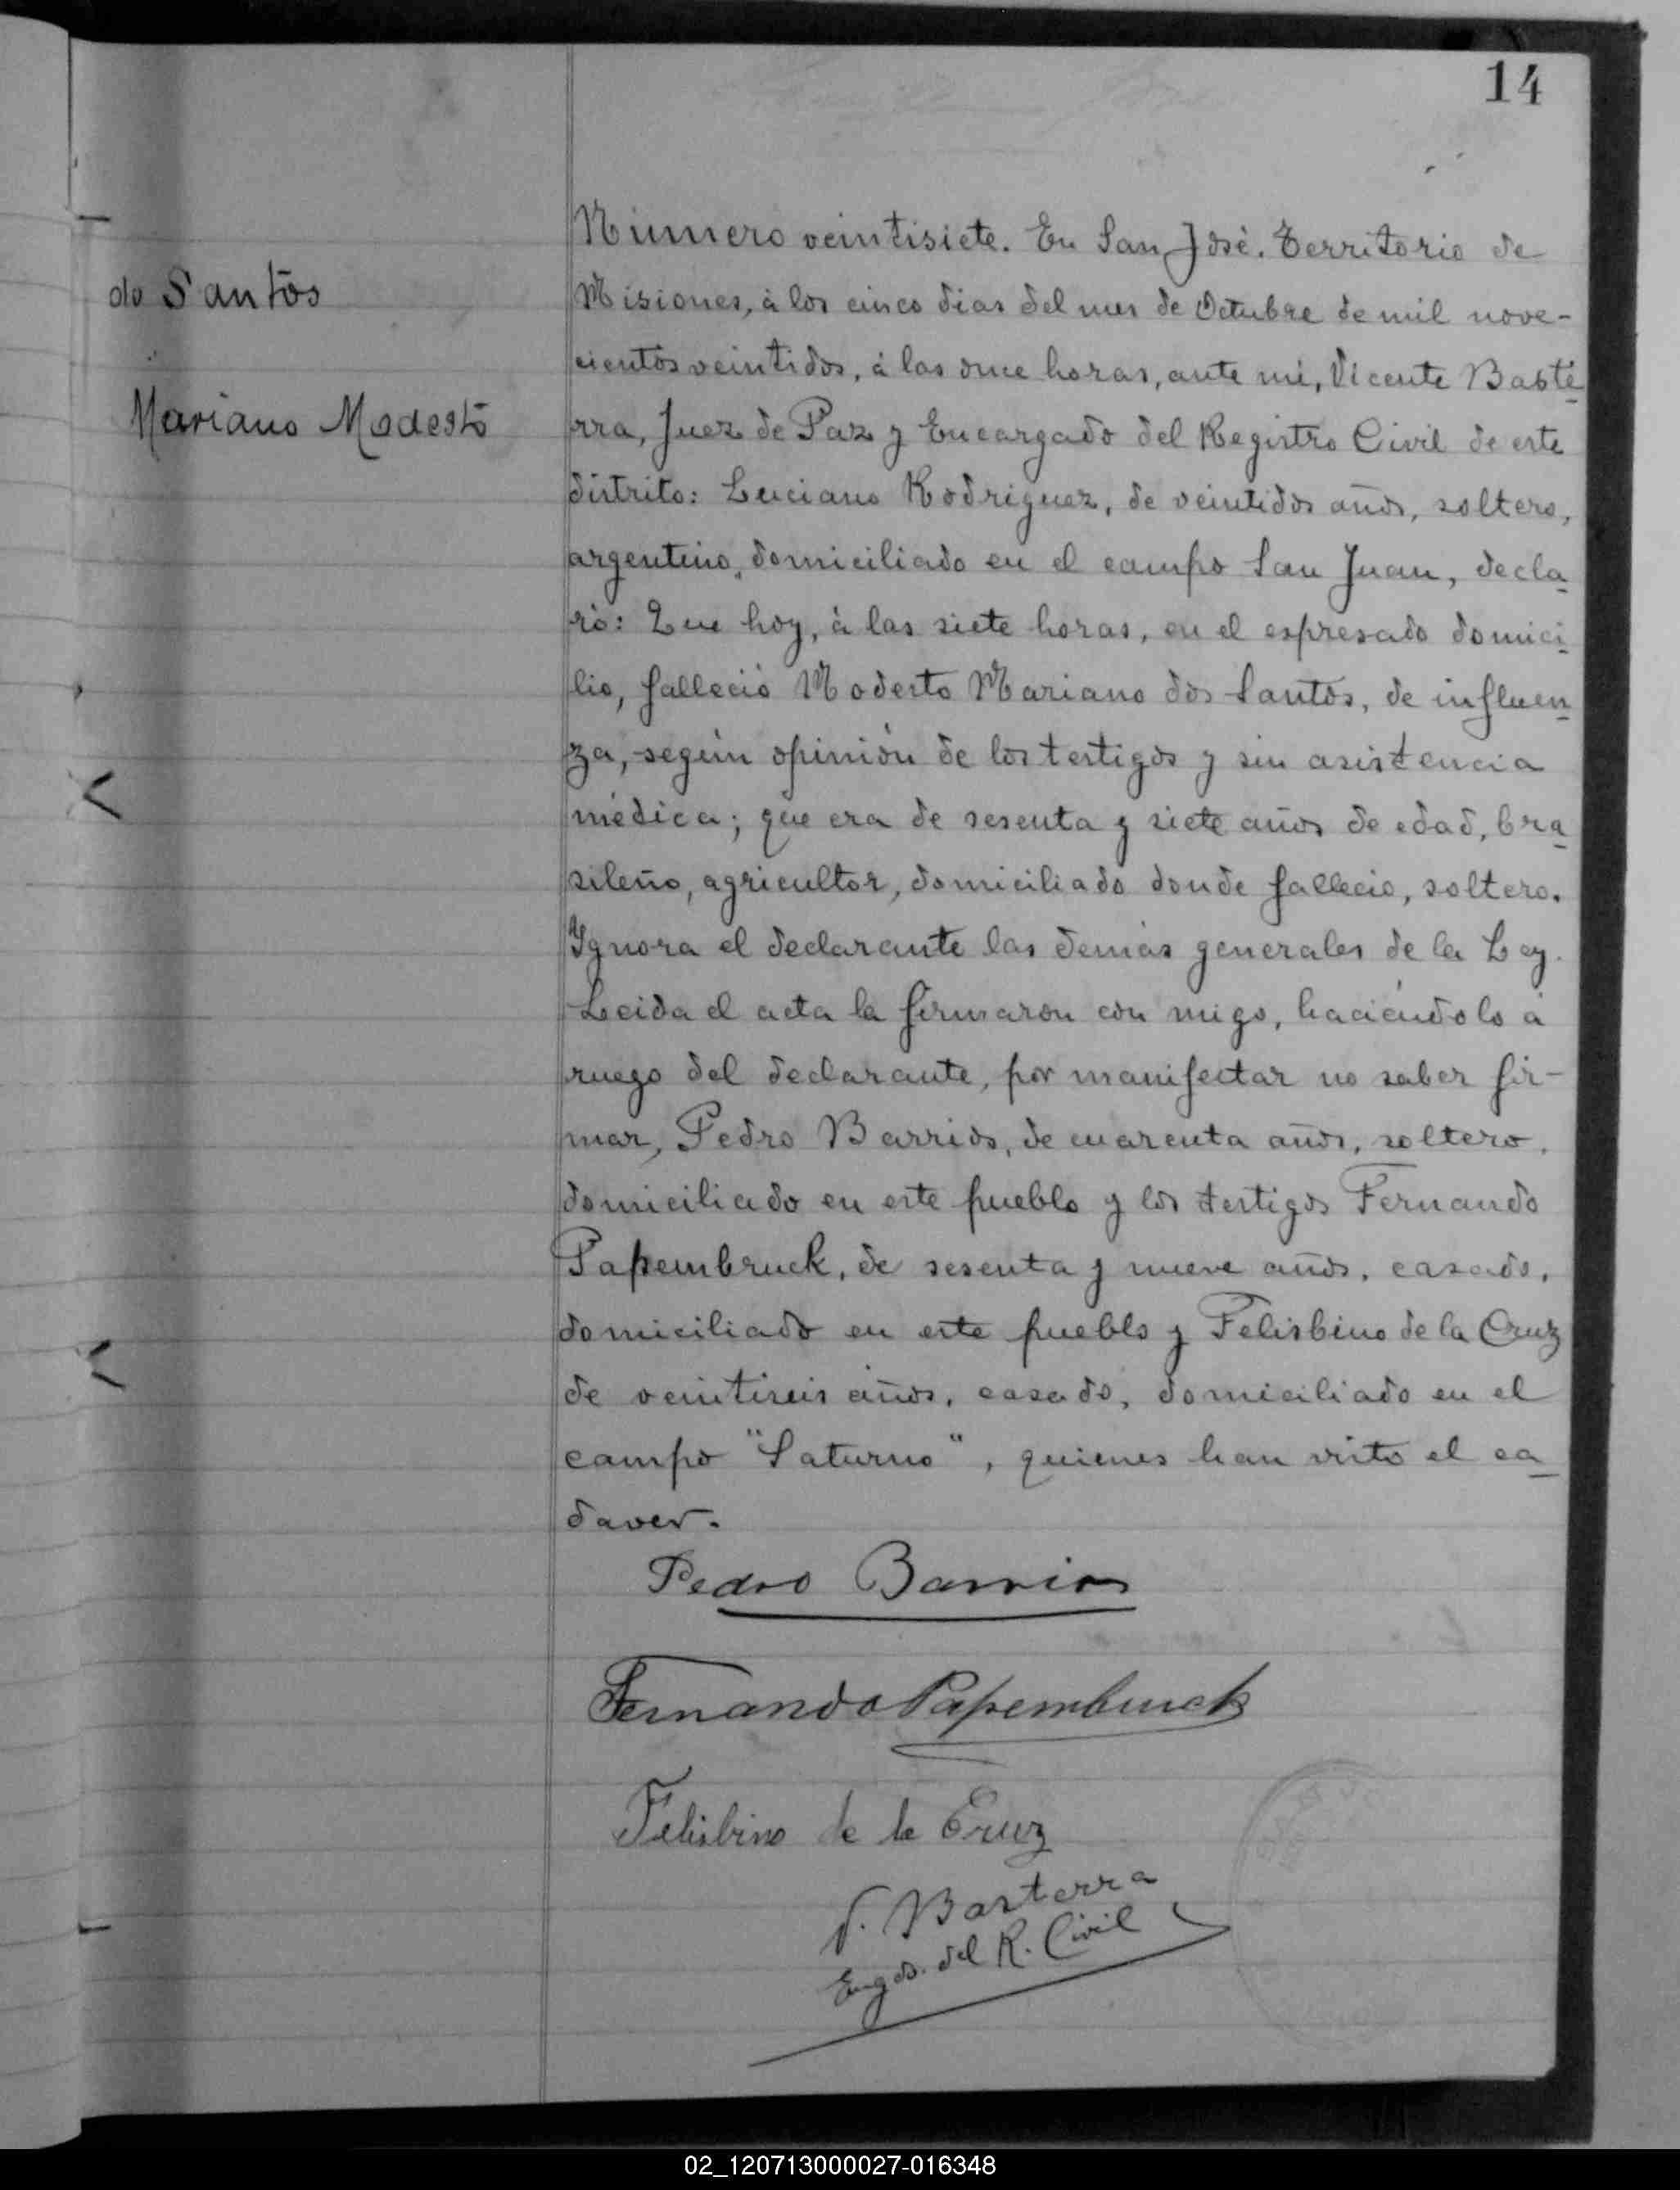 14
Número veintisiete. En San José. Territorio de
do Santos
Misiones, à los cinco dias del mes de Octubre de mil nove-
cientos veintidos, á las once horas, ante mi, Vicente Baste
Mariano Modesto
rra, Juez de Paz y Encargado del Registro Civil de este
distrito: Luciano Rodriguez, de veintidos años, soltero,
argentino, domiciliado en el campo San Juan, decla
ró: Que hoy, à las siete horas, en el espresado domici
lio, falleció Modesto Mariano dos Santos, de influen
za, según opinión de los testigos y sin asistencia
médica; que era de sesenta y siete años de edad, bra
sileño, agricultor, domiciliado donde fallecio, soltero.
Ygnora el declarante las demás generales de la Ley.
Leida el acta la firmaron con migo, haciéndolo á
ruego del declarante, por manifestar no saber fir-
mar, Pedro Barrios, de cuarenta años, soltero,
domiciliado en este pueblo y los testigos Fernando
Papembruck, de sesenta y nueve años, casado,
domiciliado en este pueblo y Felisbino de la Cruz
de veintiseis años, casado, domiciliado en el
campo "Saturno", quienes han visto el ca
daver.
Pedro Barrios
Fernando Papembruck
Felisbino de la Cruz
V. Basterra
Engdo. del R. Civil
02_120713000027-016348